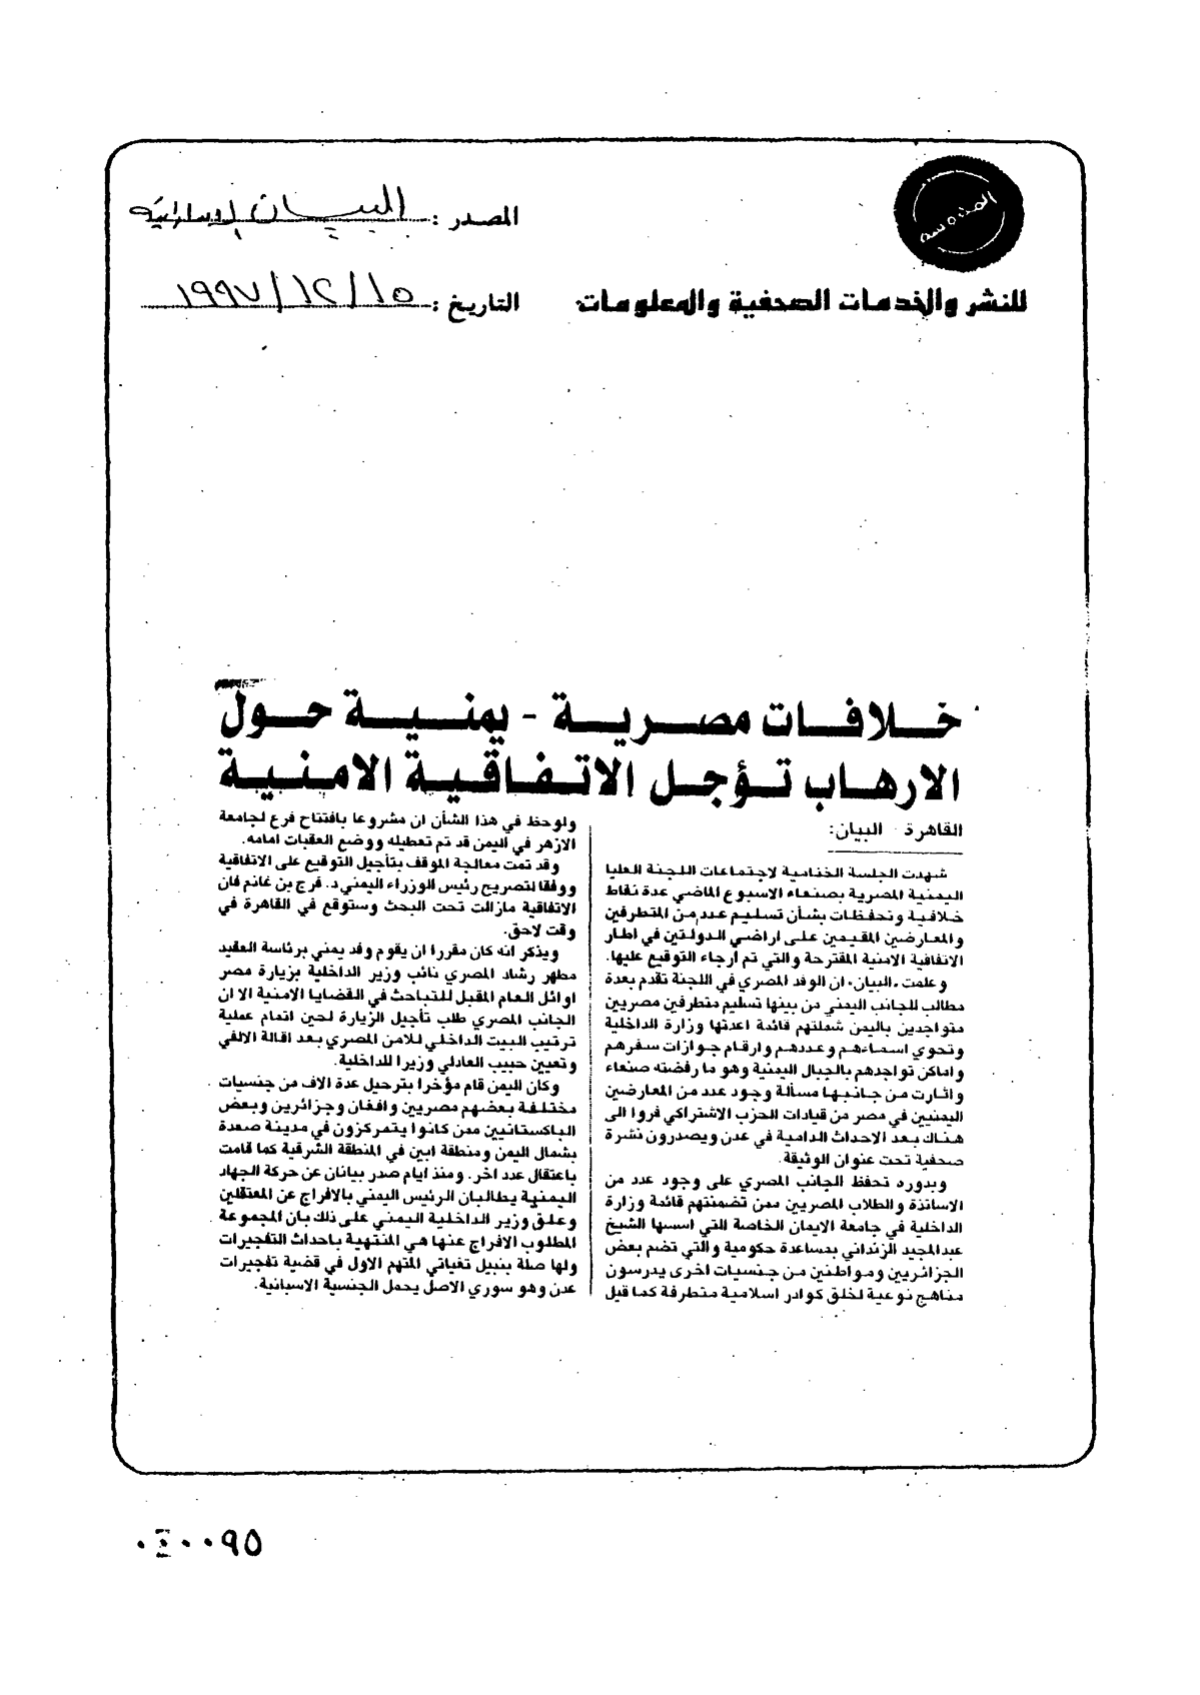 المصدر : البيان الاماراتية
التاريخ : ١٩٩٧/١٢/١٥
للنشر والخدمات الصحفية والمعلومات
خلافات مصرية - يمنية حول
الارهاب تؤجل الاتفاقية الامنية
القاهرة البيان:
شهدت الجلسة الختامية لاجتماعات اللجنة العليا
اليمنية المصرية بصنعاء الاسبوع الماضي عدة نقاط
خلافية وتحفظات بشأن تسليم عدد من المتطرفين
والمعارضين المقيمين على اراضي الدولتين في اطار
الاتفاقية الامنية المقترحة والتي تم ارجاء التوقيع عليها.
وعلمت «البيان» ان الوفد المصري في اللجنة تقدم بعدة
مطالب للجانب اليمني من بينها تسليم متطرفين مصريين
متواجدين باليمن شملتهم قائمة اعدتها وزارة الداخلية
وتحوي اسماءهم وعددهم وارقام جوازات سفرهم
واماكن تواجدهم بالجبال اليمنية وهو ما رفضته صنعاء
واثارت من جانبها مسألة وجود عدد من المعارضين
اليمنيين في مصر من قيادات الحزب الاشتراكي فروا الى
هناك بعد الاحداث الدامية في عدن ويصدرون نشرة
صحفية تحت عنوان الوثيقة.
وبدوره تحفظ الجانب المصري على وجود عدد من
الاساتذة والطلاب المصريين ممن تضمنتهم قائمة وزارة
الداخلية في جامعة الايمان الخاصة التي اسسها الشيخ
عبدالمجيد الزنداني بمساعدة حكومية والتي تضم بعض
الجزائريين ومواطنين من جنسيات اخرى يدرسون
مناهج نوعية لخلق كوادر اسلامية متطرفة كما قيل
ولوحظ في هذا الشأن ان مشروعا بافتتاح فرع لجامعة
الازهر في اليمن قد تم تعطيله ووضع العقبات امامه.
وقد تمت معالجة الموقف بتأجيل التوقيع على الاتفاقية
ووفقا لتصريح رئيس الوزراء اليمني د. فرج بن غانم فان
الاتفاقية مازالت تحت البحث وستوقع في القاهرة في
وقت لاحق.
ويذكر انه كان مقررا ان يقوم وفد يمني برئاسة العقيد
مطهر رشاد المصري نائب وزير الداخلية بزيارة مصر
اوائل العام المقبل للتباحث في القضايا الامنية الا ان
الجانب المصري طلب تأجيل الزيارة لحين اتمام عملية
ترتيب البيت الداخلي للامن المصري بعد اقالة الالفي
وتعيين حبيب العادلي وزيرا للداخلية.
وكان اليمن قام مؤخرا بترحيل عدة الاف من جنسيات
مختلفة بعضهم مصريين وافغان وجزائرين وبعض
الباكستانيين ممن كانوا يتمركزون في مدينة صعدة
بشمال اليمن ومنطقة ابين في المنطقة الشرقية كما قامت
باعتقال عدد اخر. ومنذ ايام صدر بيانان عن حركة الجهاد
اليمنية يطالبان الرئيس اليمني بالافراج عن المعتقلين
وعلق وزير الداخلية اليمني على ذلك بان المجموعة
المطلوب الافراج عنها هي المتهمة باحداث التفجيرات
ولها صلة بنبيل نغياتي المتهم الاول في قضية تفجيرات
عدن وهو سوري الاصل يحمل الجنسية الاسبانية.